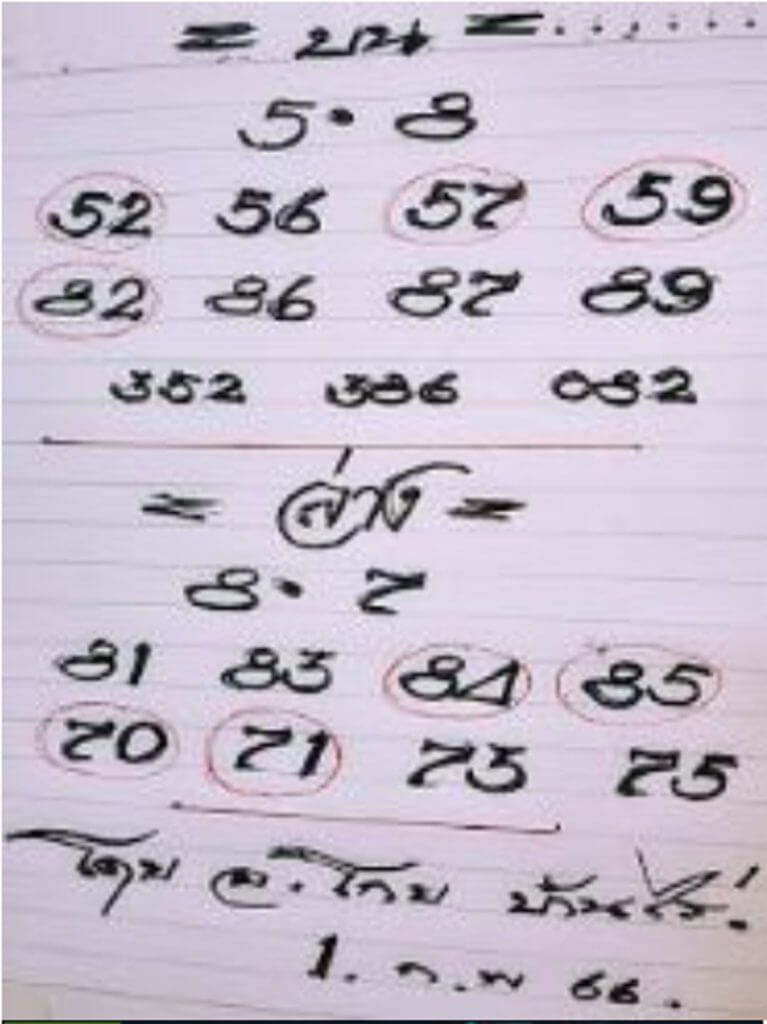 = บน = . . . . . . .
5 . 8
52 56 57 59
82 86 87 89
352 386 082
= ล่าง =
8 . 7
81 83 84 85
70 71 73 75
โดย อ. โกย บ้านไร่
1. ก.พ 66.